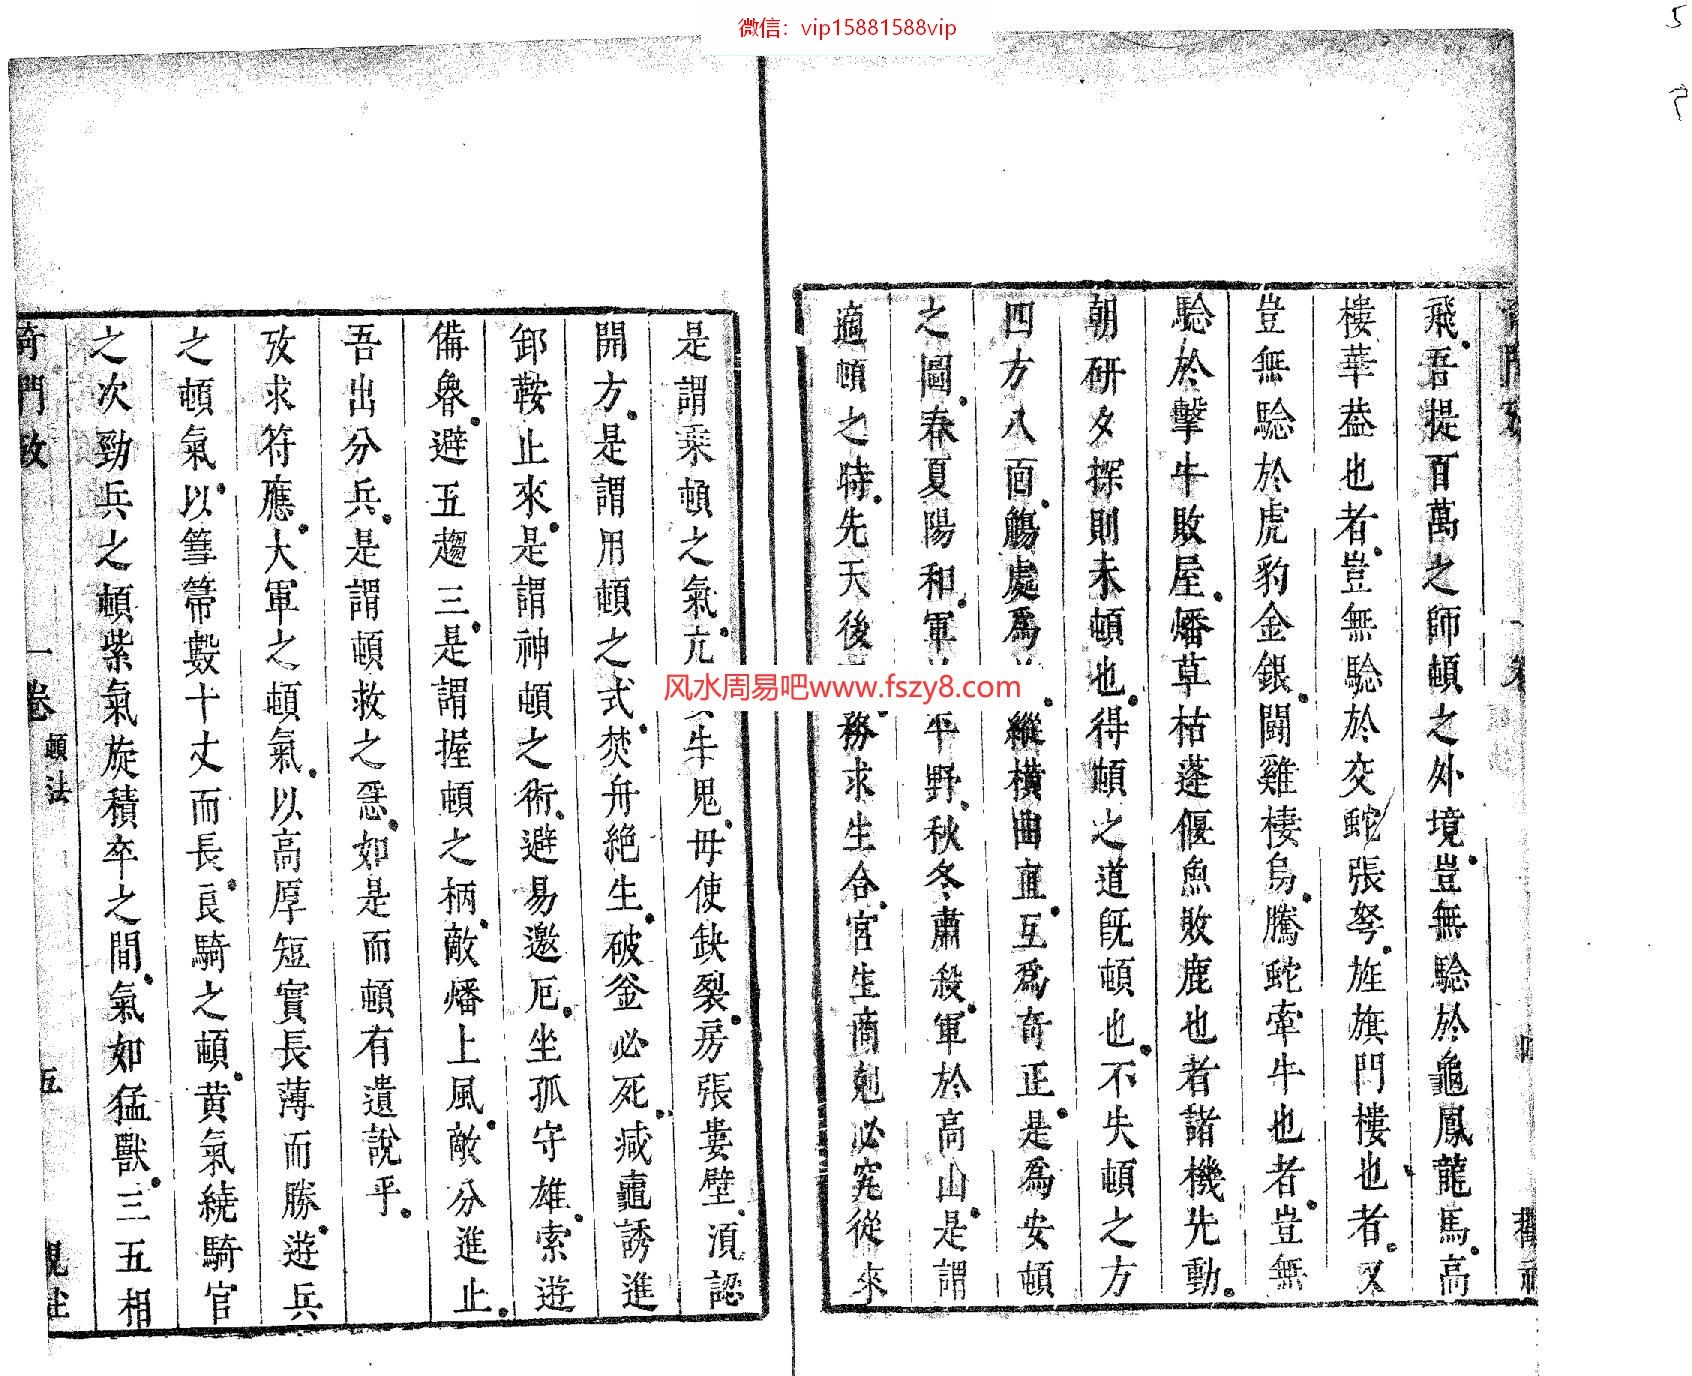 微信：vip15881588vip
飛吾提百萬之師頓之外境豈無騐於龜鳳龍馬高
樓華葢也者豈無騐於交蛇張弩旌旗門樓也者又
豈無騐於虎豹金銀鬪雞棲烏騰蛇牽牛也者豈無
騐於擊牛敗屋燔草枯蓬偃魚敗鹿也者諸機先動
朝研夕探則未頓也得頓之道旣頓也不失頓之方
四方八面觴處爲縱橫曲直互爲奇正是爲安頓
之圖春夏陽和軍平野秋冬肅殺軍於高山是謂
適頓之時先天後務求生合宮生商尅必究從來
是謂乘頓之氣亢牛鬼毋使缺裂房張婁壁湏認
開方是謂用頓之式焚舟絕生破釜必死减竈誘進
卸鞍止來是謂神頓之術避易邀厄坐孤守雄索遊
備奐避五趨三是謂握頓之柄敵燔上風敵分進止
吾出分兵是謂頓救之惡如是而頓有遺說乎
攷求符應大軍之頓氣以高厚短實長薄而勝遊兵
之頓氣以篲箒數十丈而長良騎之頓黃氣繞騎官
之次勁兵之頓紫氣旋積卒之間氣如猛獸三五相
奇門攷 一卷 頓法 五
风水周易吧www.fszy8.com